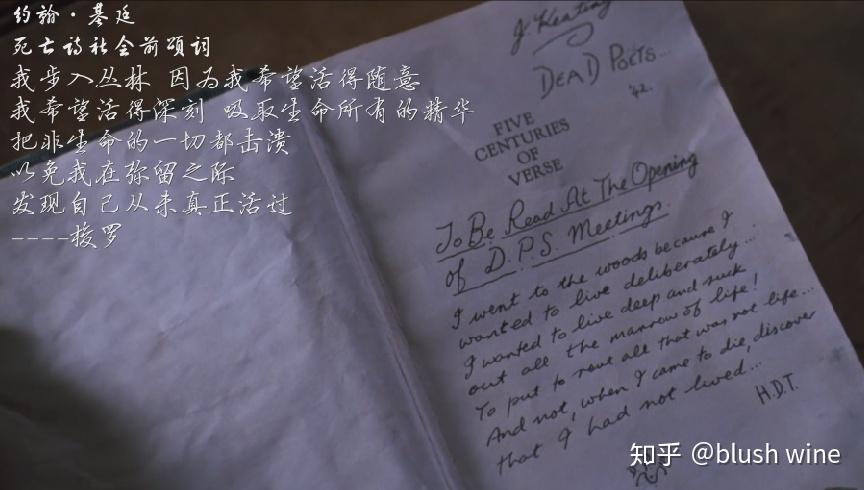 约翰·基廷
死亡诗社会前颂词
我步入丛林 因为我希望活得随意
我希望活得深刻 吸取生命所有的精华
把非生命的一切都击溃
以免我在弥留之际
发现自己从来真正活过
----梭罗
J. Keating
DEAD POETS...
'42.
FIVE
CENTURIES
OF
VERSE
To Be Read At The Opening
of D.P.S. Meetings.
I went to the woods because I
wanted to live deliberately...
I wanted to live deep and suck
out all the marrow of life!
To put to rout all that was not life...
And not, when I came to die, discover
that I had not lived...
H.D.T.
知乎 @blush wine